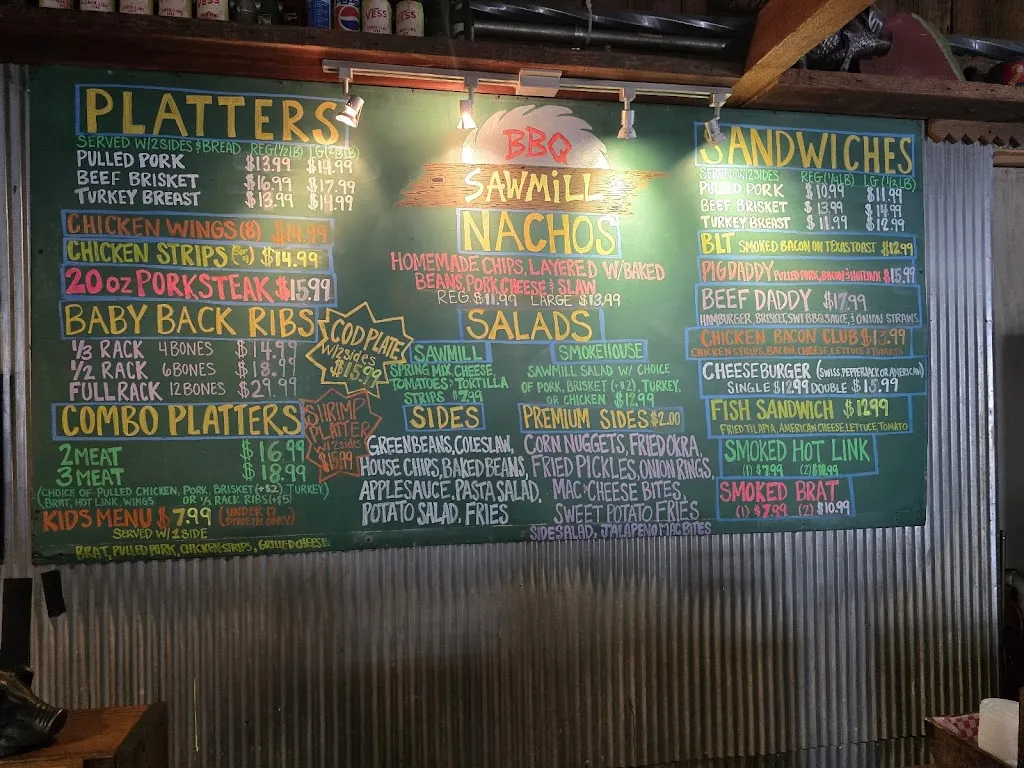 VESS
PEPSI
VESS
VESS
PLATTERS
SERVED W/2SIDES $BREAD REG(1/2LB) LG(2/3LB)
PULLED PORK $13.99 $14.99
BEEF BRISKET $16.99 $17.99
TURKEY BREAST $13.99 $14.99
CHICKEN WINGS(8) $14.99
CHICKEN STRIPS $14.99
20 OZ PORKSTEAK $15.99
BABY BACK RIBS
1/3 RACK 4 BONES $14.99
1/2 RACK 6 BONES $18.99
FULL RACK 12 BONES $29.99
COD PLATE
W/2SIDES
$15.99
COMBO PLATTERS
2 MEAT $16.99
3 MEAT $18.99
(CHOICE OF PULLED CHICKEN, PORK, BRISKET(+$2), TURKEY)
BRAT, HOT LINK, WINGS OR 1/3 RACK RIBS(+$5)
SHRIMP
PLATTER
W/2SIDES
$15.99
KIDS MENU $7.99 (UNDER 12 DINE IN ONLY)
SERVED W/1 SIDE
BRAT, PULLED PORK, CHICKEN STRIPS, GRILLED CHEESE
BBQ
SAWMILL
NACHOS
HOMEMADE CHIPS, LAYERED W/BAKED
BEANS, PORK, CHEESE & SLAW
REG. $11.99 LARGE $13.99
SALADS
SAWMILL
SPRING MIX, CHEESE,
TOMATOES & TORTILLA
STRIPS $7.99
SMOKEHOUSE
SAWMILL SALAD W/ CHOICE
OF PORK, BRISKET (+$2), TURKEY,
OR CHICKEN $12.99
SIDES
GREEN BEANS, COLESLAW,
HOUSE CHIPS, BAKED BEANS,
APPLESAUCE, PASTA SALAD,
POTATO SALAD, FRIES
PREMIUM SIDES $2.00
CORN NUGGETS, FRIED OKRA,
FRIED PICKLES, ONION RINGS,
MAC & CHEESE BITES,
SWEET POTATO FRIES
SIDE SALAD, JALAPENO MAC BITES
SANDWICHES
SERVED W/2SIDES REG(1/4LB) LG(1/2LB)
PULLED PORK $10.99 $11.99
BEEF BRISKET $13.99 $14.99
TURKEY BREAST $11.99 $12.99
BLT SMOKED BACON ON TEXAS TOAST $12.99
PIGDADDY PULLED PORK, BACON & HOTLINK $15.99
BEEF DADDY $17.99
HAMBURGER, BRISKET, SWT BBQ SAUCE, & ONION STRAWS
CHICKEN BACON CLUB $13.99
CHICKEN STRIPS, BACON, CHEESE, LETTUCE & TOMATO
CHEESEBURGER (SWISS, PEPPERJACK OR AMERICAN)
SINGLE $12.99 DOUBLE $15.99
FISH SANDWICH $12.99
FRIED TILAPIA, AMERICAN CHEESE, LETTUCE, TOMATO
SMOKED HOT LINK
(1) $7.99 (2) $10.99
SMOKED BRAT
(1) $7.99 (2) $10.99